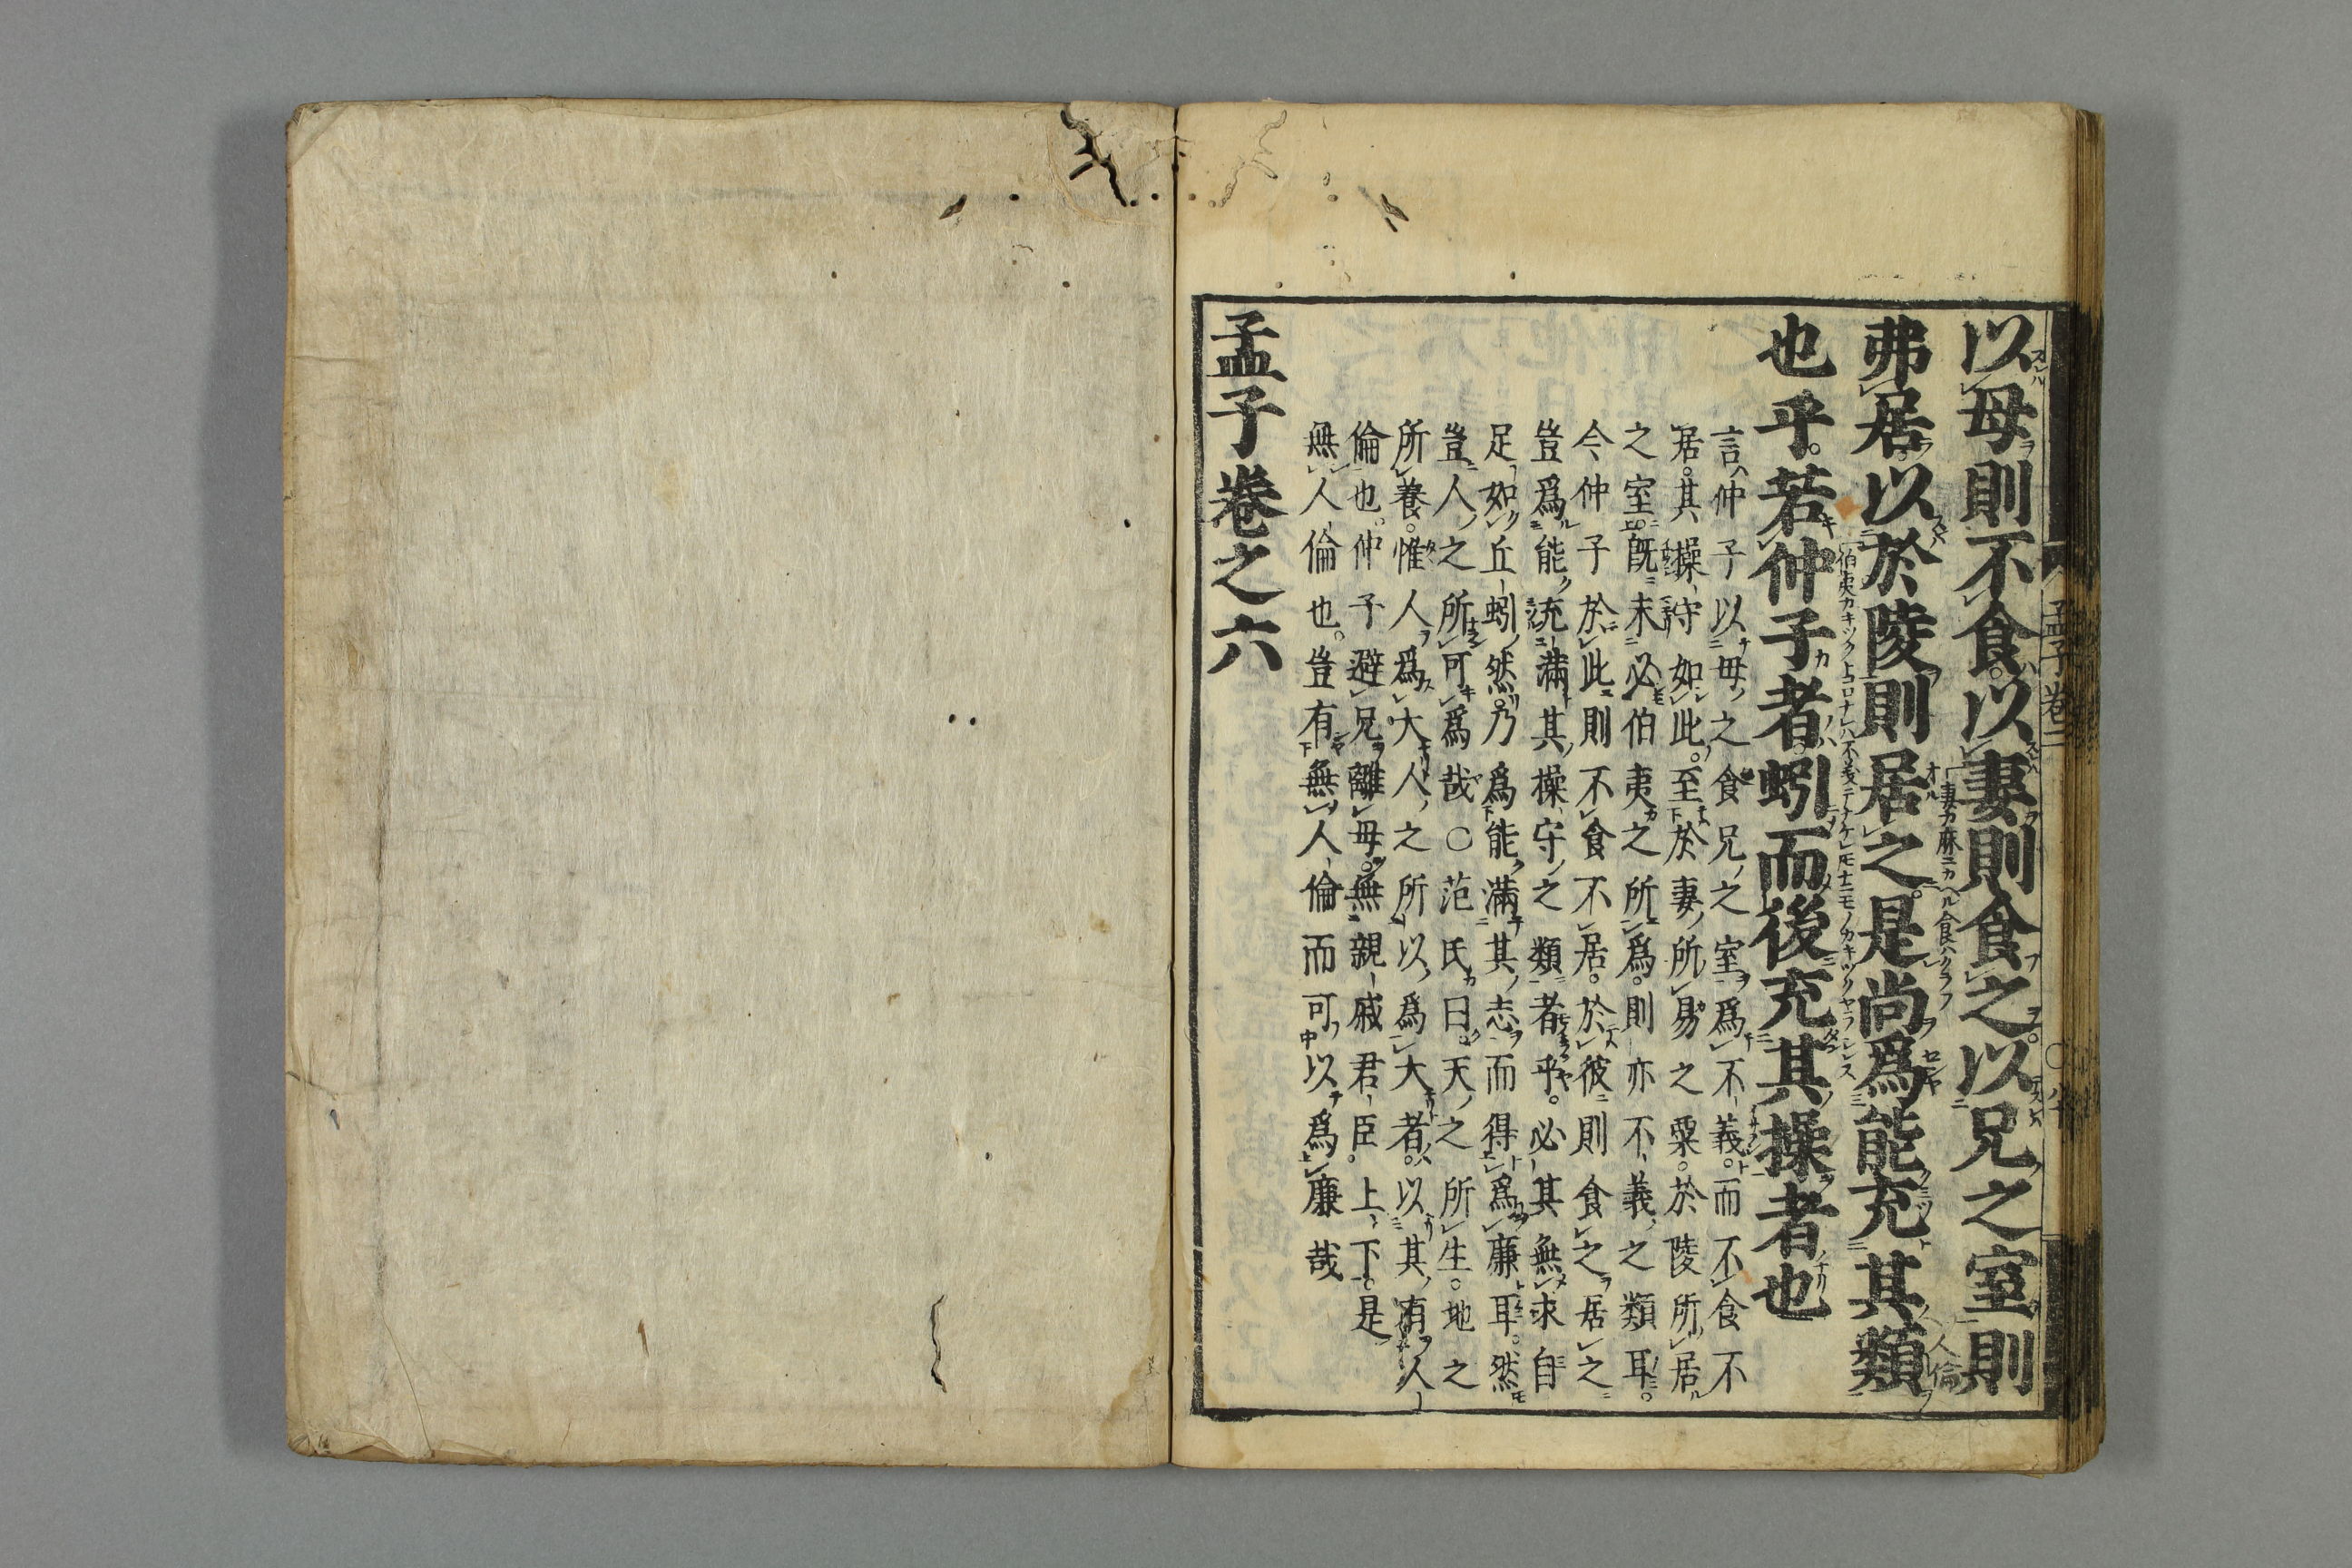 以母則不食以妻則食之以兄之室則
弗居以於陵則居之是尚爲能充其類
也乎若仲子者蚓而後充其操者也
言仲子以母之食兄之室爲不義而不食不
居其操守如此至於妻所易之粟於陵所居
之室既未必伯夷之所爲則亦不義之類耳
今仲子於此則不食不居於彼則食之居之
豈爲能充滿其操守之類者乎必其無求自
足如丘蚓然乃爲能滿其志而得爲廉耳然
豈人之所可爲哉○范氏曰天之所生地之
所養惟人爲大人之所以爲大者以其有人
倫也仲子避兄離母無親戚君臣上下是
無人倫也豈有無人倫而可以爲廉哉
孟子卷之六